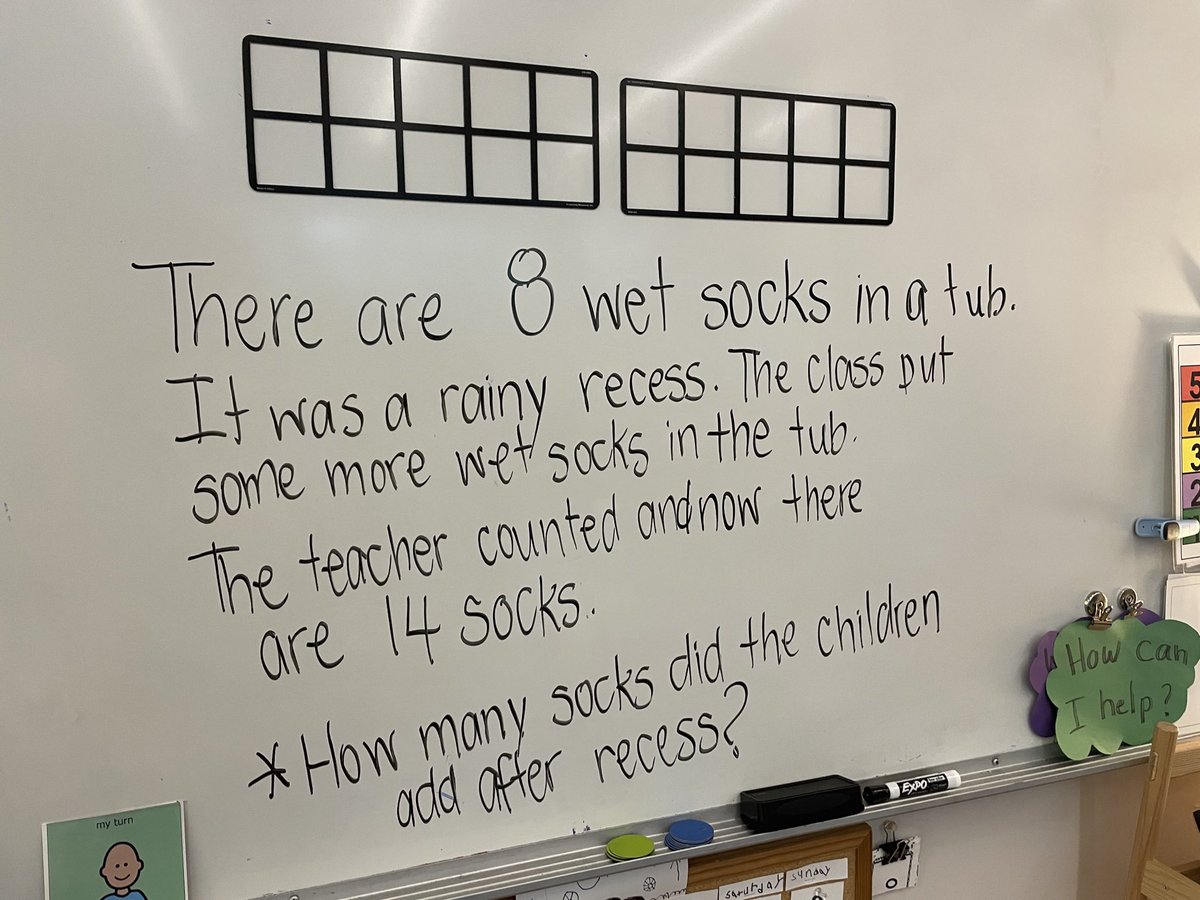 There are 8 wet socks in a tub.
It was a rainy recess. The class put
some more wet socks in the tub.
The teacher counted and now there
are 14 socks.
* How many socks did the children
add after recess?
5
4
3
2
How can
I help?
EXPO
my turn
saturday
sunday